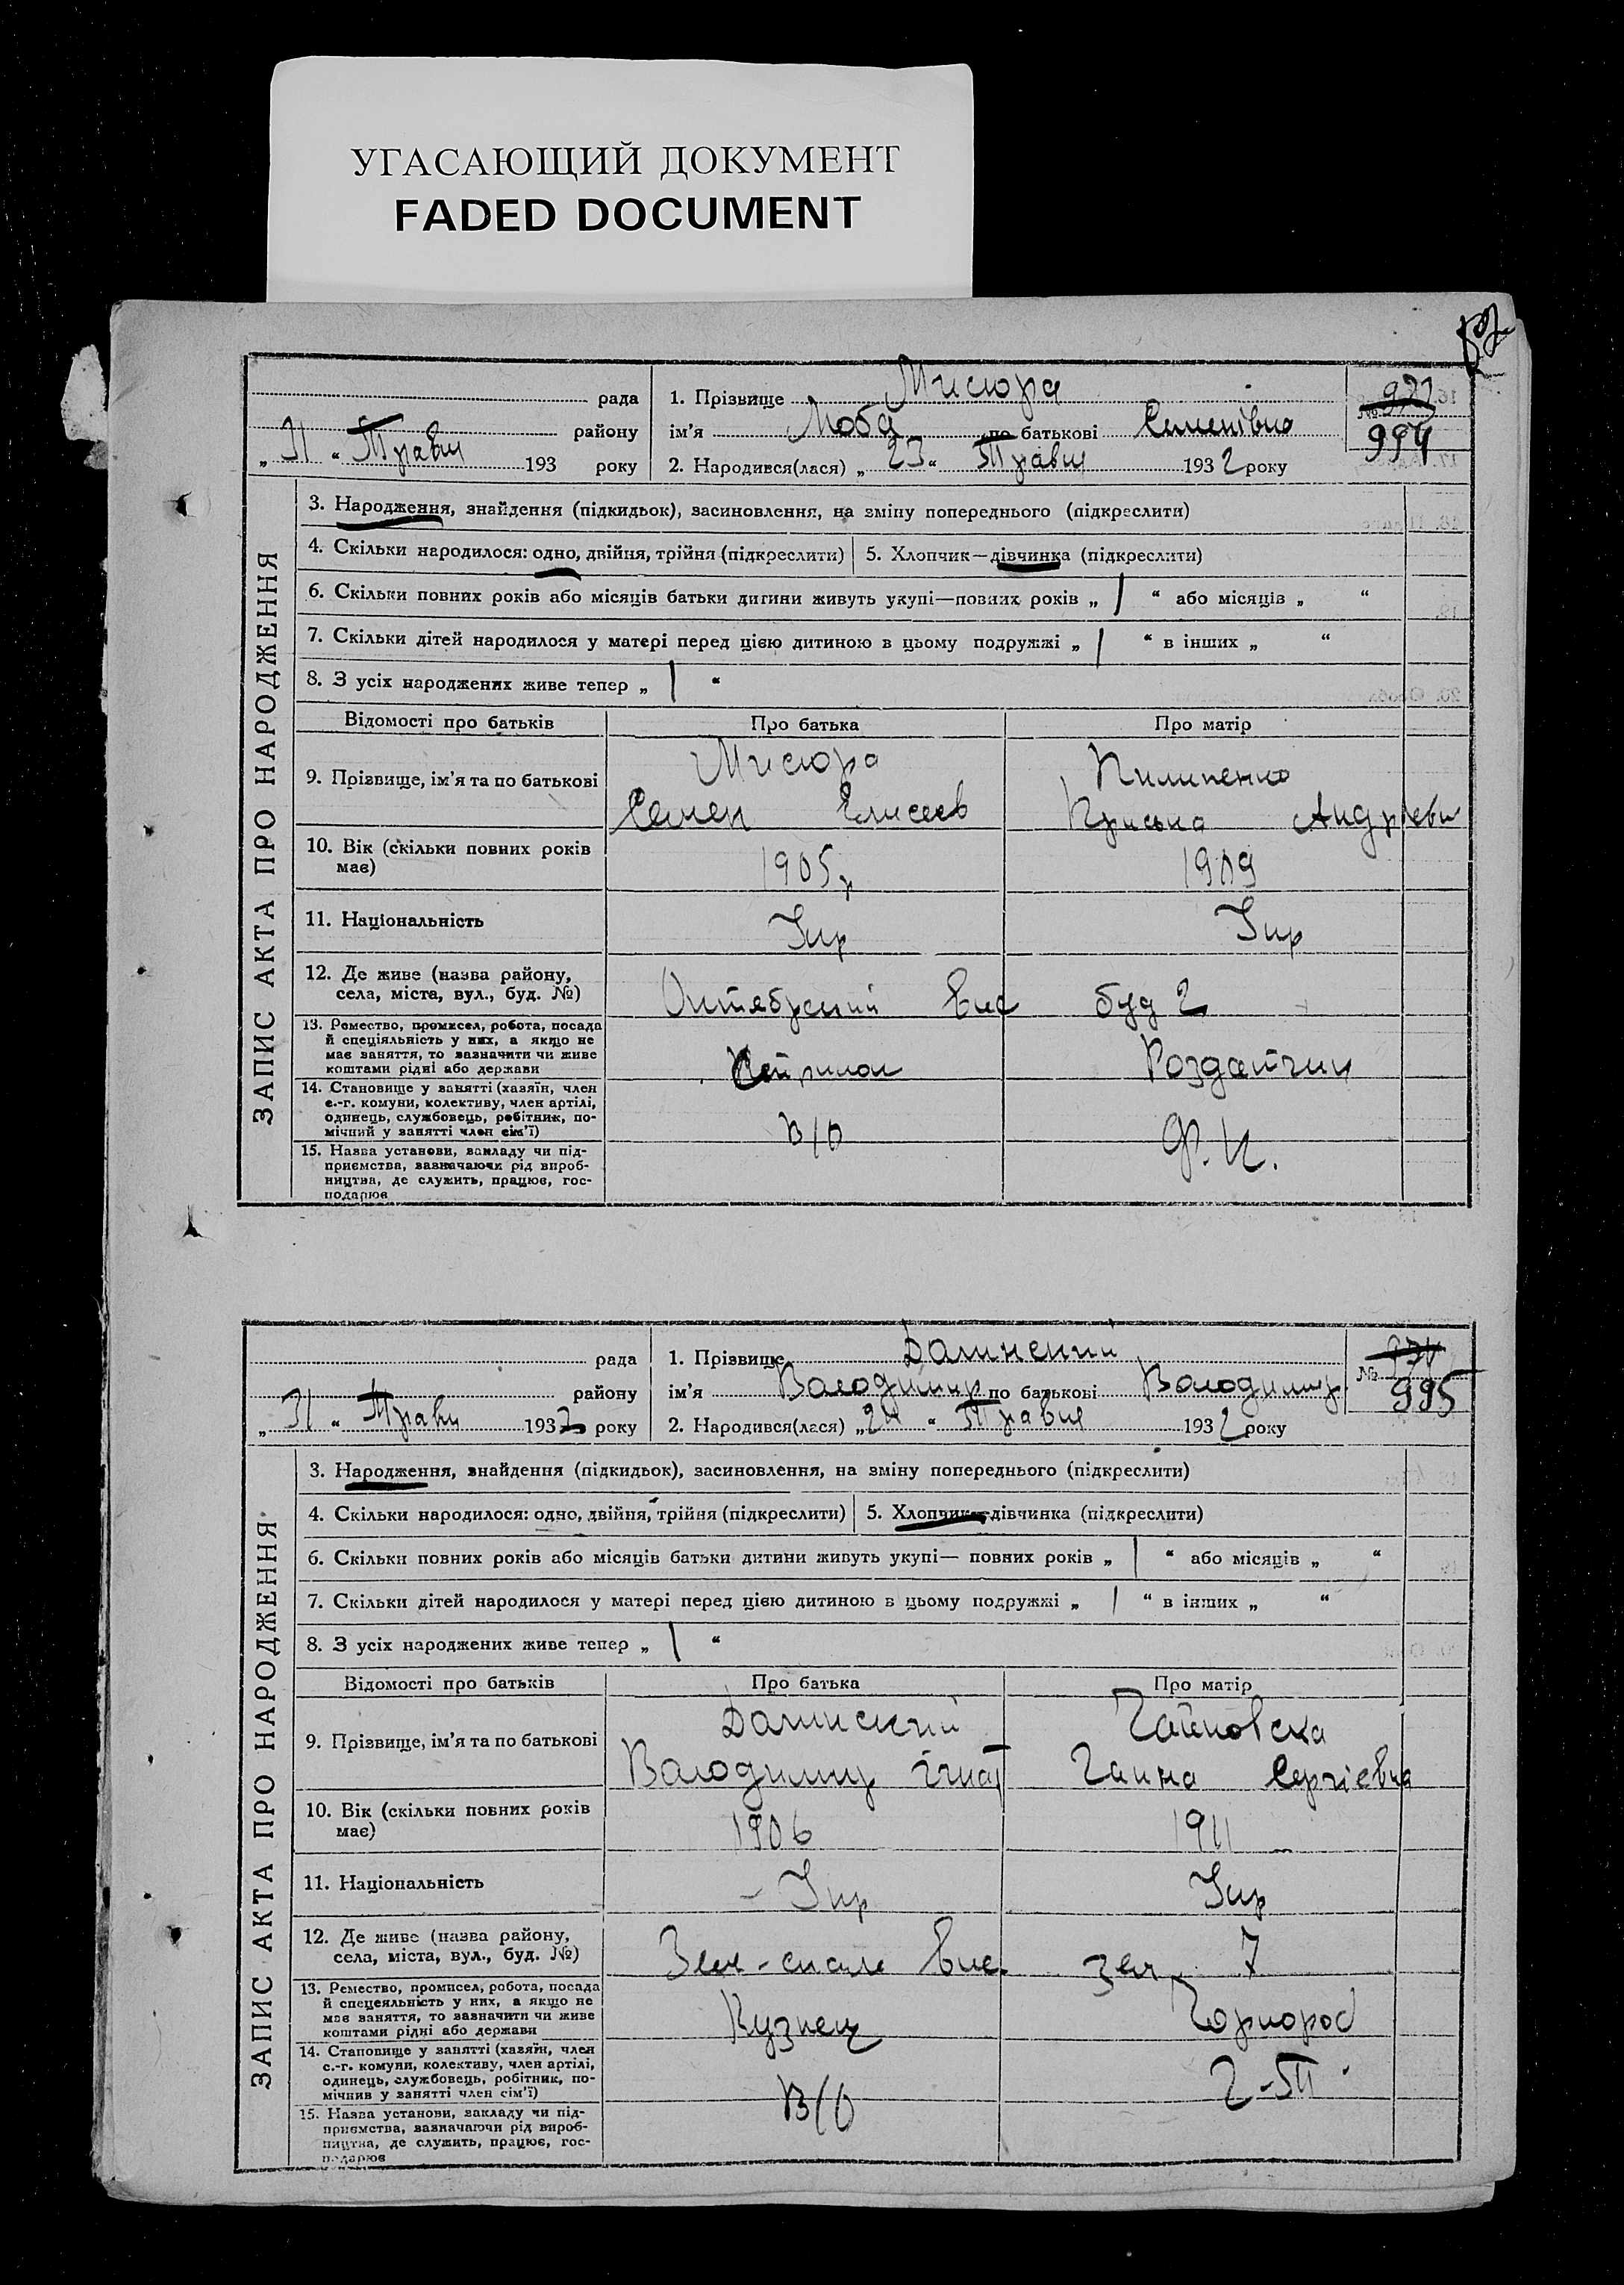 УГАСАЮЩИЙ ДОКУМЕНТ
FADED DOCUMENT
рада
району
„ 31 “ Травн 193 року
1. Прізвище Мисюра
ім'я по батькові Семенівна
2. Народився(лася) „ 23 “ Травня 1932 року
№ 994
ЗАПИС АКТА ПРО НАРОДЖЕННЯ
3. Народження, знайдення (підкидьок), засиновлення, на зміну попереднього (підкреслити)
4. Скільки народилося: одно, двійня, трійня (підкреслити) 5. Хлопчик—дівчинка (підкреслити)
6. Скільки повних років або місяців батьки дитини живуть укупі—повних років „ “ або місяців „ “
7. Скільки дітей народилося у матері перед цією дитиною в цьому подружжі „ “ в інших „ “
8. З усіх народжених живе тепер „ “
Відомості про батьків Про батька Про матір
9. Прізвище, ім'я та по батькові
Мисюра Пилипенко
Семен Елисеев Андріевн
10. Вік (скільки повних років
має)
1905р 1909
11. Національність Укр Укр
12. Де живе (назва району,
села, міста, вул., буд. №)
Октябрский вис буд 2
13. Ремество, промисел, робота, посада
й спеціяльність у них, а якщо не
має заняття, то зазначити чи живе
коштами рідні або держави
Роздатчик
14. Становище у занятті (хазяїн, член
с.-г. комуни, колективу, член артілі,
одинець, службовець, робітник, по-
мічний у занятті член сім'ї)
Ф. К.
15. Назва установи, закладу чи під-
приємства, зазначаючи рід вироб-
ництва, де служить, працює, гос-
подарює
рада
району
„ 31 “ Травн 1932 року
1. Прізвище
ім'я Володимир по батькові Володимир
2. Народився(лася) „ “ Травня 1932 року
№ 995
ЗАПИС АКТА ПРО НАРОДЖЕННЯ
3. Народження, знайдення (підкидьок), засиновлення, на зміну попереднього (підкреслити)
4. Скільки народилося: одно, двійня, трійня (підкреслити) 5. Хлопчик—дівчинка (підкреслити)
6. Скільки повних років або місяців батьки дитини живуть укупі— повних років „ “ або місяців „ “
7. Скільки дітей народилося у матері перед цією дитиною в цьому подружжі „ “ в інших „ “
8. З усіх народжених живе тепер „ “
Відомості про батьків Про батька Про матір
9. Прізвище, ім'я та по батькові
Володимир Ігнат Ганна Сергіевна
10. Вік (скільки повних років
має)
1906 1911
11. Національність Укр Укр
12. Де живе (назва району,
села, міста, вул., буд. №)
вис. 7
13. Ремество, промисел, робота, посада
й спецеяльність у них, а якщо не
має заняття, то зазначити чи живе
коштами рідні або держави
Кузнец Чорнороб
14. Становище у занятті (хазяїн, член
с.-г. комуни, колективу, член артілі,
одинець, службовець, робітник, по-
мічник у занятті член сім'ї)
15. Назва установи, закладу чи під-
приємства, зазначаючи рід вироб-
ництва, де служить, працює, гос-
подарює